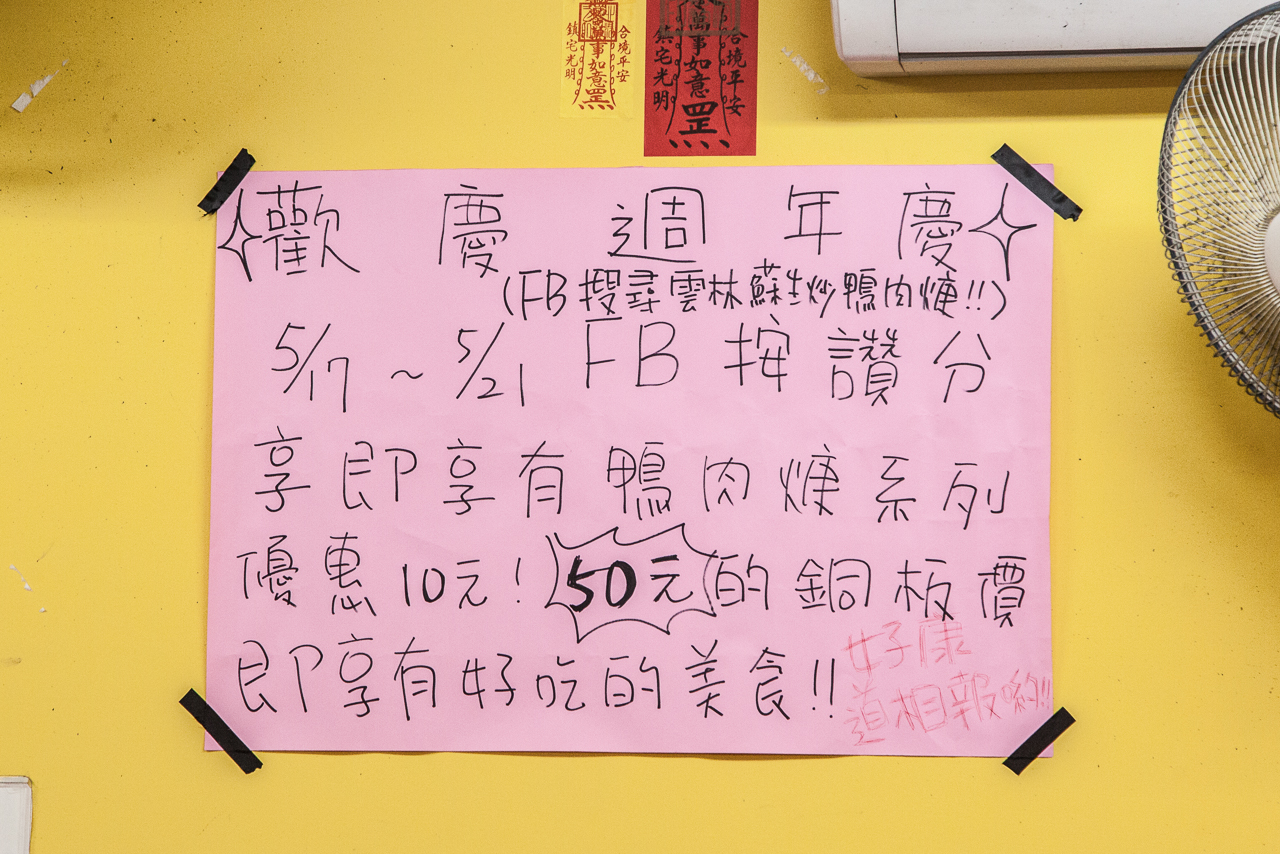 鎮宅光明
萬事如意罡
合境平安
鎮宅光明
萬事如意罡
合境平安
歡慶週年慶
(FB搜尋雲林蘇生炒鴨肉焿!!)
5/17~5/21 FB按讚分
享即享有鴨肉焿系列
優惠10元! 50元的銅板價
即享有好吃的美食!!
好康
道相報喲!!